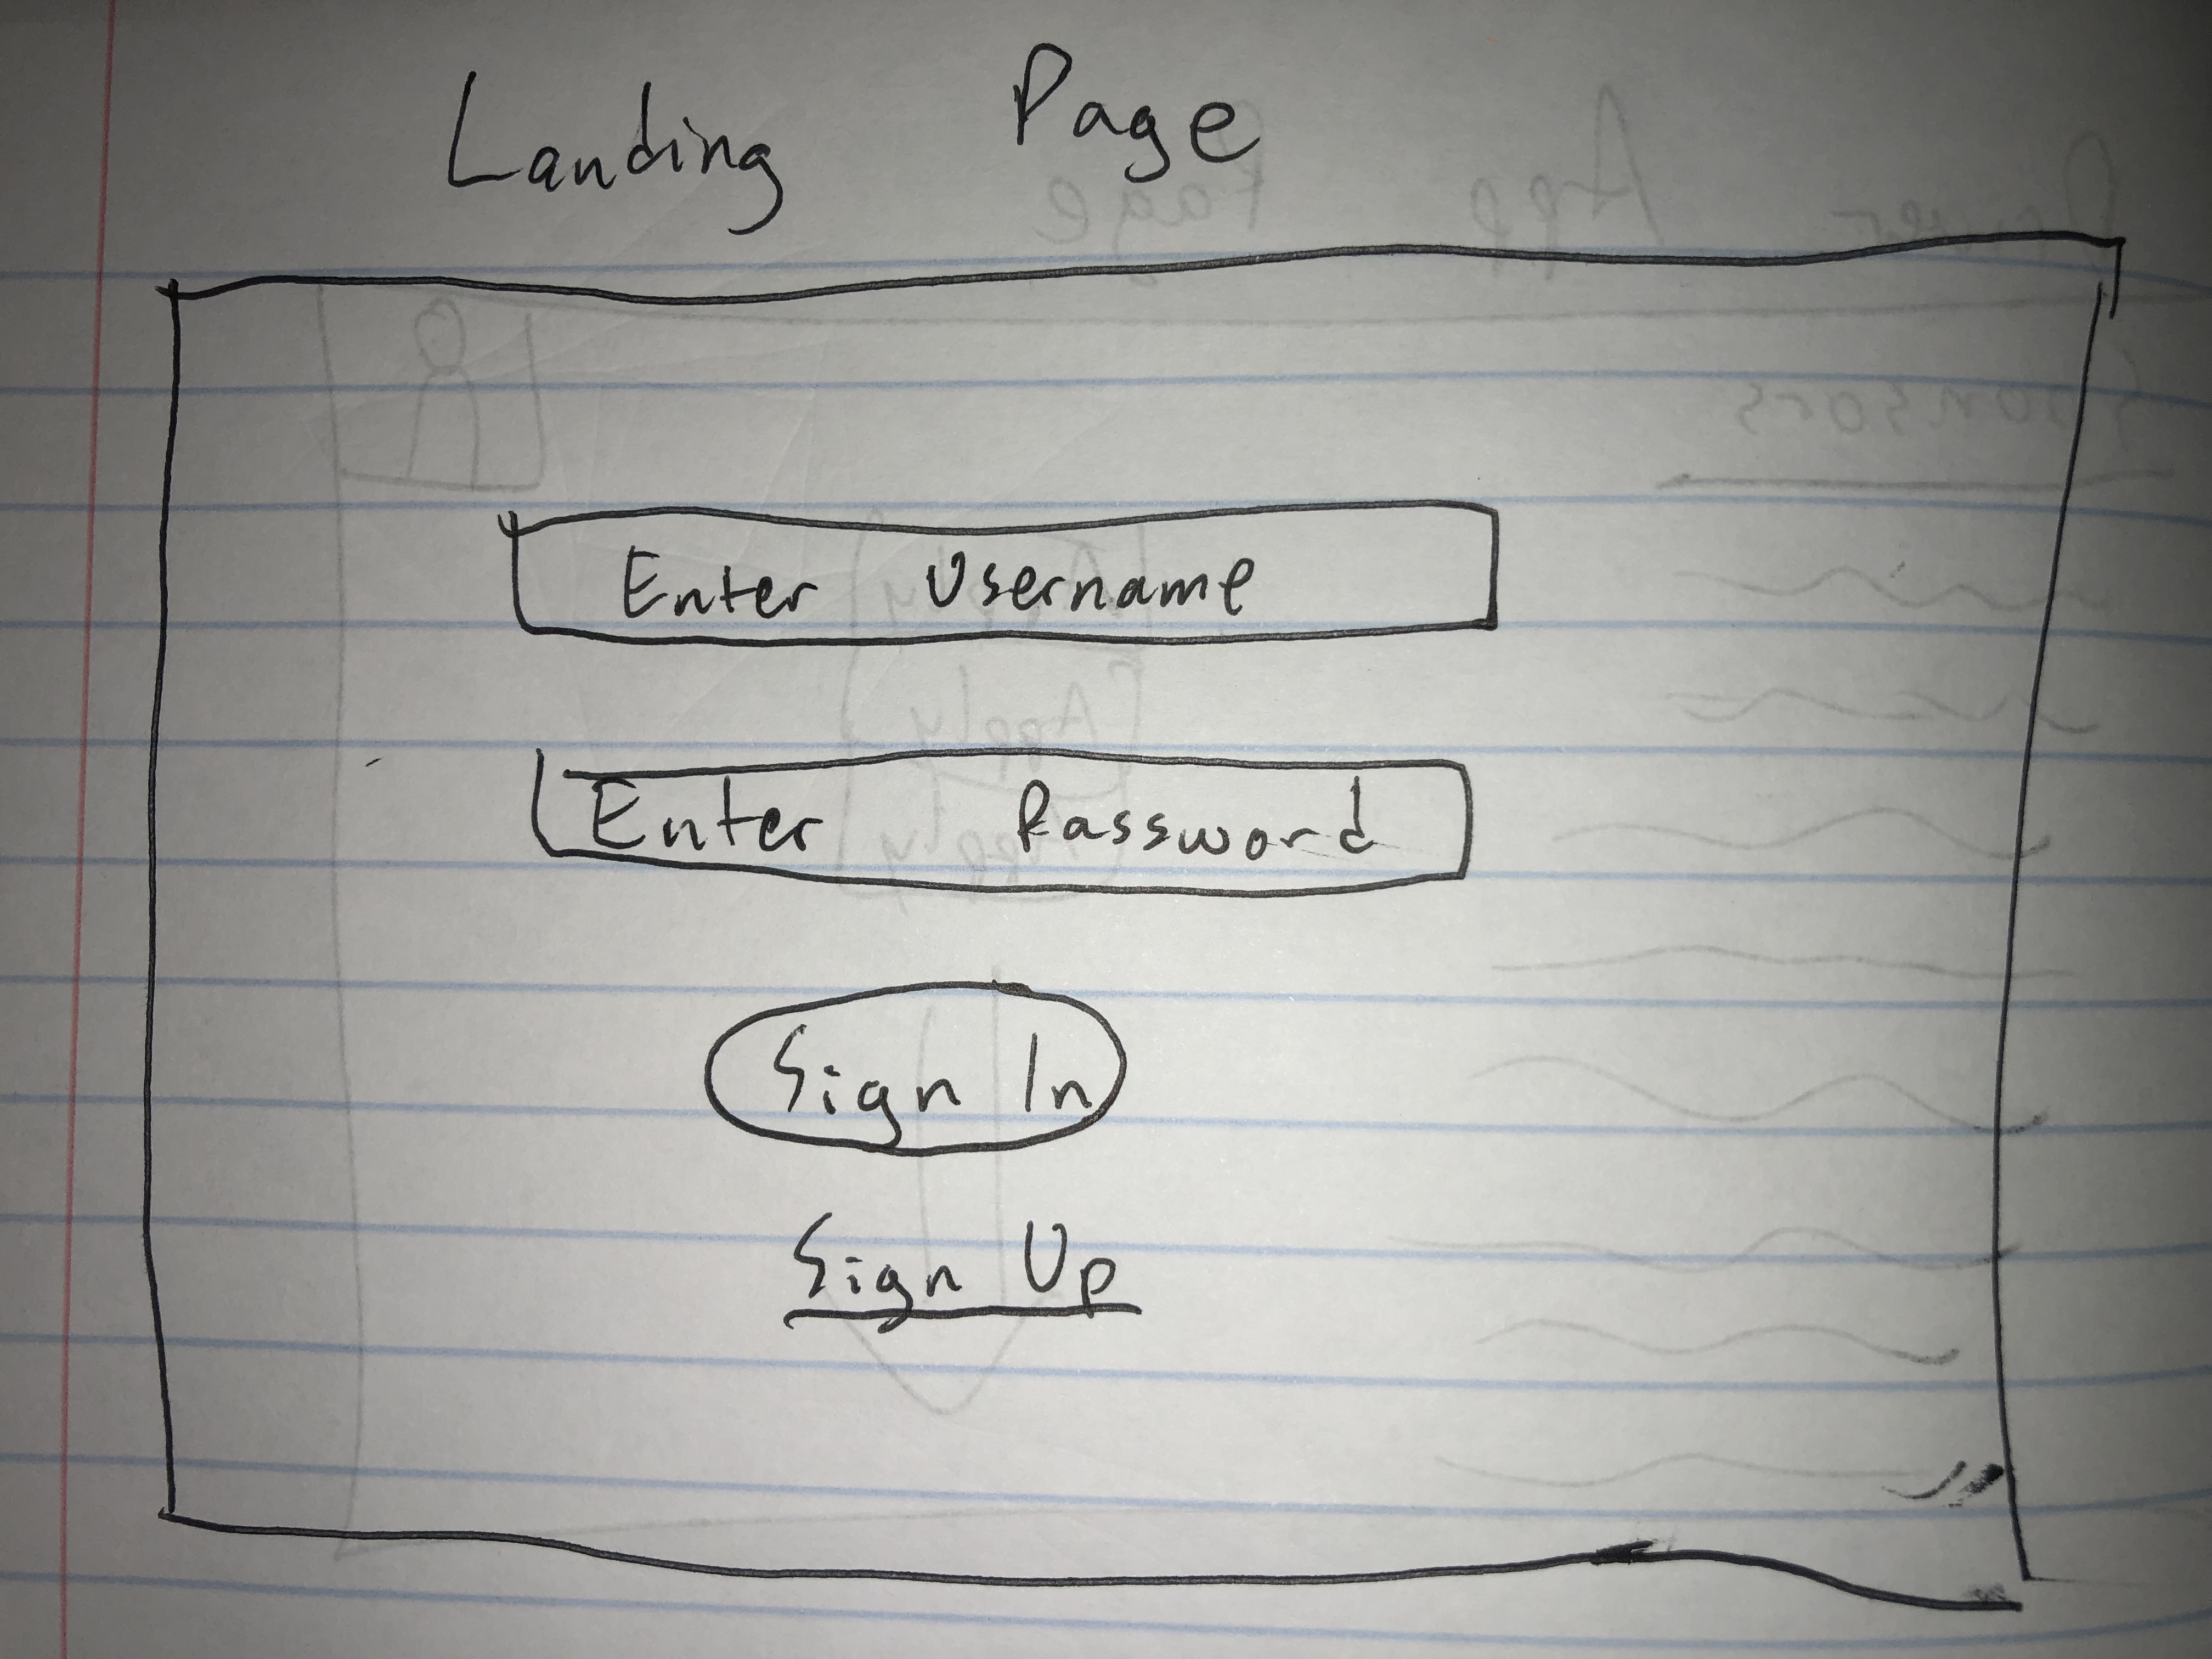 Landing Page
Enter Username
Enter Password
Sign In
Sign Up